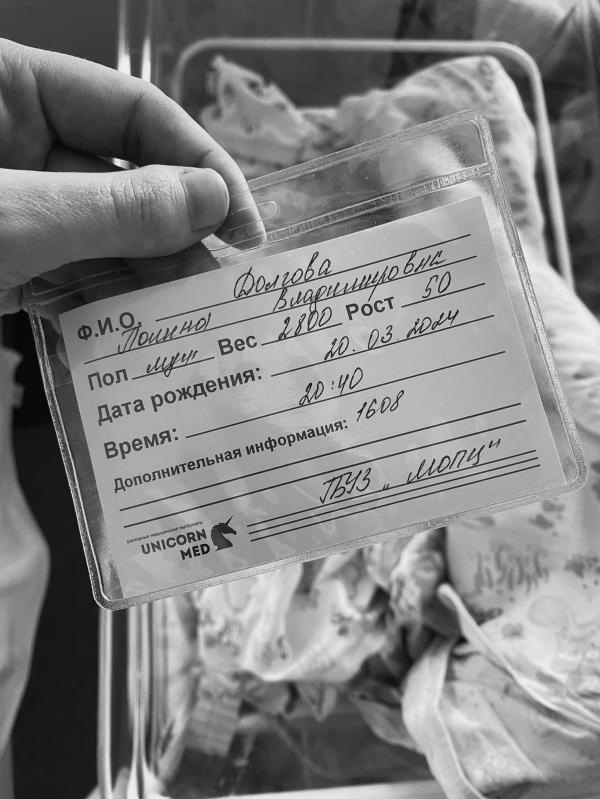 Долгова
Ф.И.О. Полина Владимировна
Пол муж Вес 2800 Рост 50
Дата рождения: 20.03.2024
Время: 20:40
Дополнительная информация: 1608
ГБУЗ „МОПЦ"
расходные медицинские материалы
UNICORN
MED